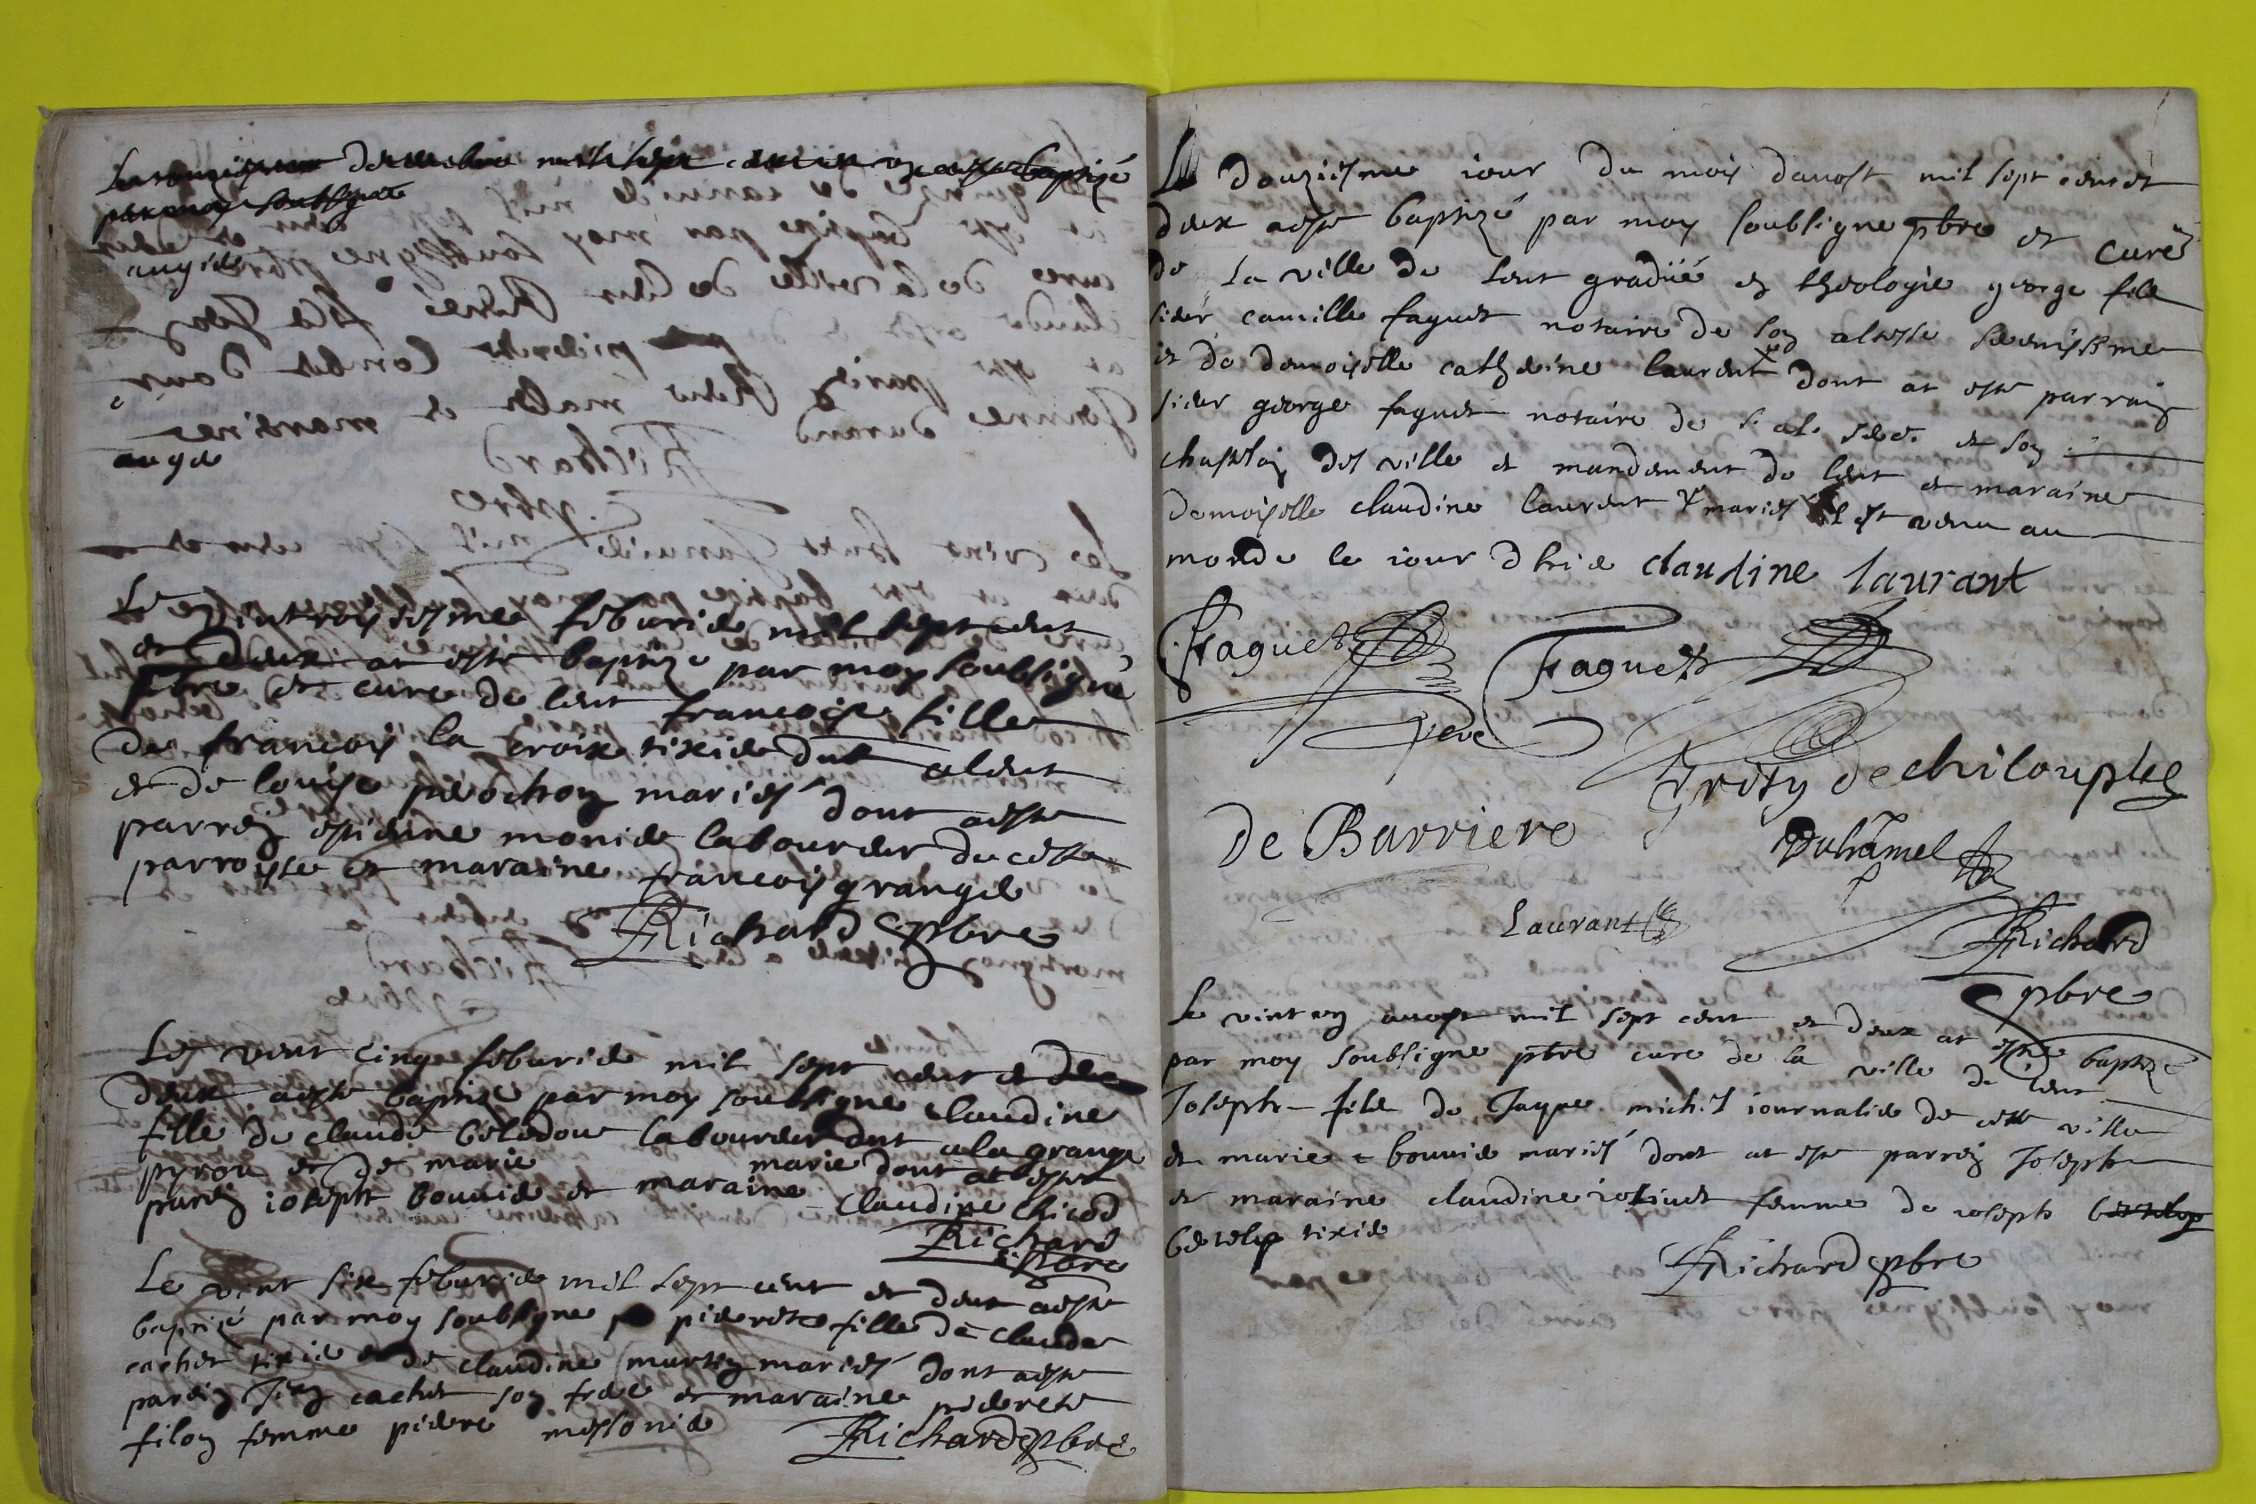 par moy soubsigne
Le vintroysiesme feburier mil sept cent
et deux at este baptize par moy soubsigné
pbre et cure de lent francoise fille
de francois la croix tixier dud a lent
et de louise perochon mariés dont at este
parrein estienne monier laboureur de ceste
parroysse et maraine francoys grangier
Richard pbre
Les vent cinq feburier mil sept cent et
deux at este baptize par moy soubsigne claudine
fille de claude beledou laboureur dud a la grange
pyrou et de marie marie dont at este
parein ioseph bouvier et maraine claudine chicod
Richard
pbre
Le vint six feburier mil sept cent et deux at este
baptizé par moy soubsigne pierrete fille de claude
cachet tixier et de claudine martin mariés dont at este
parein Jean cachet son frere et maraine pierrete
filon femme pierre messonier Richard pbre
Le douziesme iour du mois daoust mil sept cent et
deux at este baptizé par moy soubsigne pbre et curé
de la ville de lent gradué en theologie george fils
sieur camille faguet notaire de son altesse serenissime
et de demoiselle catherine laurent dont at este parrain
sieur george faguet notaire de s. al. sere. et son
chastelain des ville et mandement de lent et maraine
demoiselle claudine laurent mariés il est venu au
monde le iour dhier claudine laurant
Faguet Faguet
pere
Grisy de chiloup
De Barriere Duhamel
Laurant
Richard
pbre
Le vint un aoust mil sept cent et deux at este baptizé
par moy soubsigne pbre cure de la ville de lent
Joseph fils de Jaque michel iournalier de ceste ville
et marie bouvier mariés dont at este parrein Joseph
et maraine claudine iolivet femme de ioseph
tixier
Richard pbre